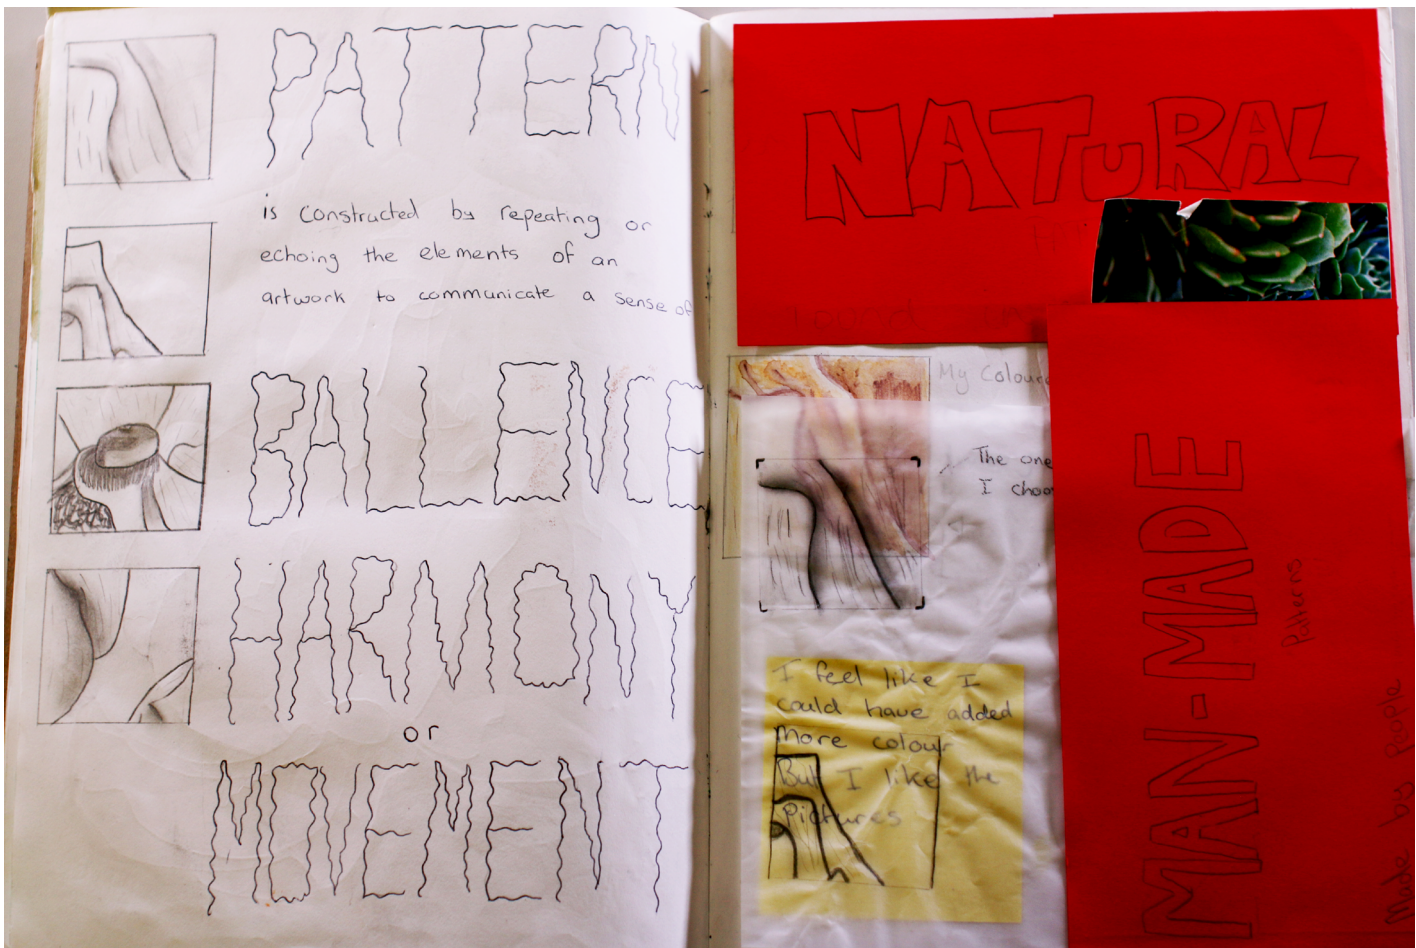 PATTERN
is constructed by repeating or
echoing the elements of an
artwork to communicate a sense of
BALLENCE
HARMONY
or
MOVEMENT
NATURAL
My Colour
The one
I choo
I feel like I
could have added
More colour
But I like the
Pictures
MAN-MADE
Patterns
Make by people